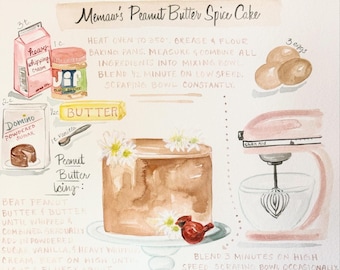 Memaw's Peanut Butter Spice Cake
HEAT OVEN TO 350°. GREASE & FLOUR
BAKING PANS. MEASURE & COMBINE ALL
INGREDIENTS INTO MIXING BOWL.
BLEND ½ MINUTE ON LOW SPEED,
SCRAPING BOWL CONSTANTLY.
3 eggs
heavy
whipping
cream
BUTTER
Domino
POWDERED
SUGAR
Peanut
Butter
Icing:
BEAT PEANUT
BUTTER & BUTTER
UNTIL WHIPPED &
COMBINED. GRADUALLY
ADD IN POWDERED
SUGAR, VANILLA & HEAVY WHIPPING
CREAM. BEAT ON HIGH UNTIL
BLEND 3 MINUTES ON HIGH
SPEED, SCRAPING BOWL OCCASIONALLY.